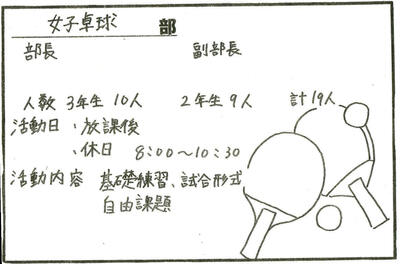 女子卓球 部
部長 副部長
人数 3年生 10人 2年生 9人 計19人
活動日 ・放課後
・休日 8:00〜10:30
活動内容 基礎練習、試合形式
自由課題